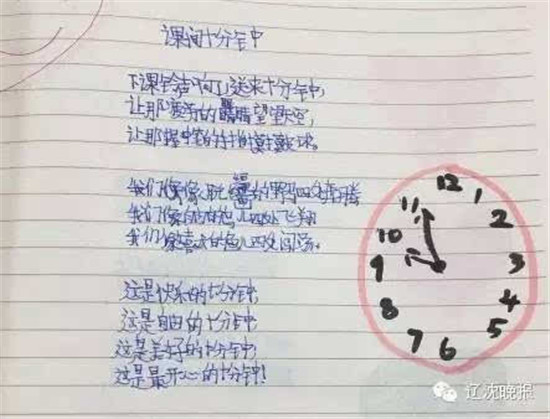 课间十分钟
下课铃声响了,送来十分钟,
让那疲劳的眼睛望望天空,
让那握笔的手
我们像脱缰的野马四处奔腾
我们像自由的鸟儿四处飞翔
我们像 的鱼儿四处闯荡。
这是快乐的十分钟,
这是自由的十分钟,
这是美好的十分钟,
这是最开心的十分钟!
12
1
2
3
4
5
6
7
8
9
10
11
辽沈晚报